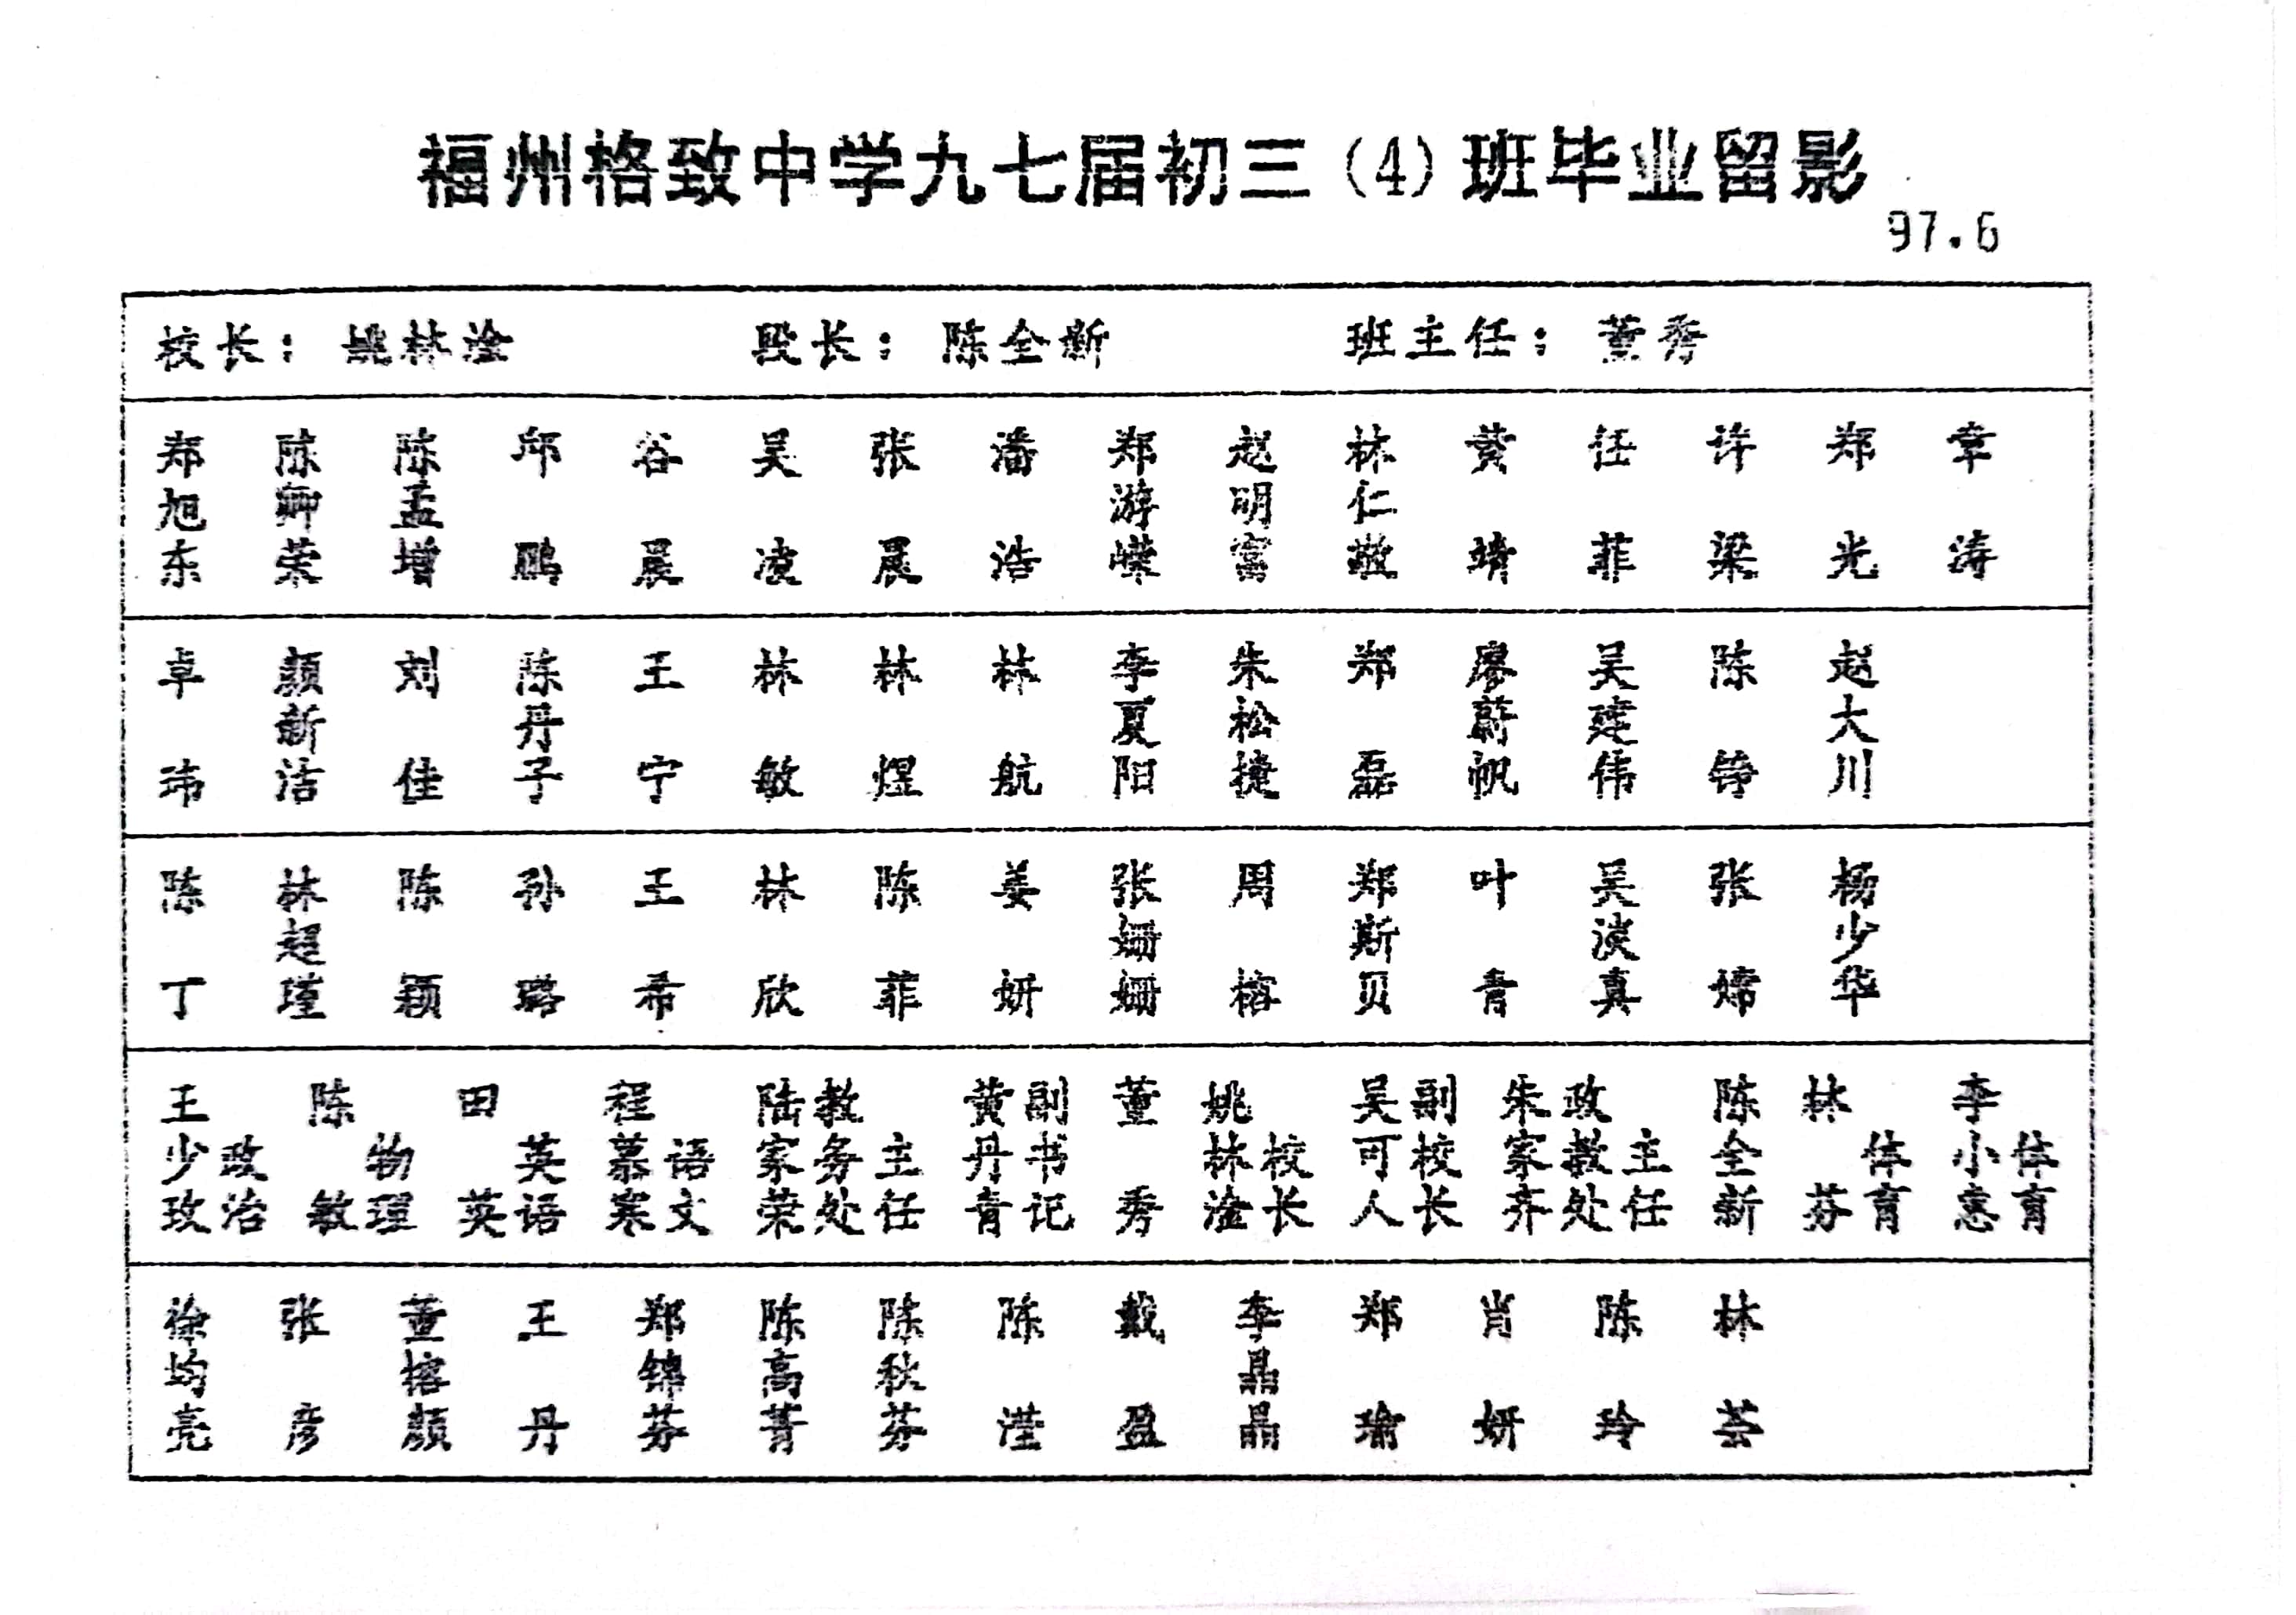 福州格致中学九七届初三(4)班毕业留影
97.6
校长：姚林淦 段长：陈全新 班主任：董秀
郑旭东 陈卿荣 陈孟增 邱鹏 谷晨 吴凌 张晨 潘浩 郑游嵘 赵明富 林仁敬 黄靖 任菲 许梁 郑光 章涛
卓玮 颜新洁 刘佳 陈丹子 王宁 林敏 林煜 林航 李夏阳 朱松捷 郑磊 廖蔚帆 吴建伟 陈铮 赵大川
陈丁 林超瑾 陈颖 孙璐 王希 林欣 陈菲 姜妍 张姗姗 周榕 郑斯贝 叶青 吴淡真 张嫦 杨少华
王少玫 政治 陈敏 物理 田英 英语 程慕寒 语文 陆家荣 教务处主任 黄丹青 副书记 董秀 姚林淦 校长 吴可人 副校长 朱家齐 政教处主任 陈全新 林芬 体育 李小惠 体育
徐均亮 张彦 董榕颜 王丹 郑锦芬 陈高菁 陈秋芬 陈滢 戴盈 李晶晶 郑瑜 肖妍 陈玲 林荟